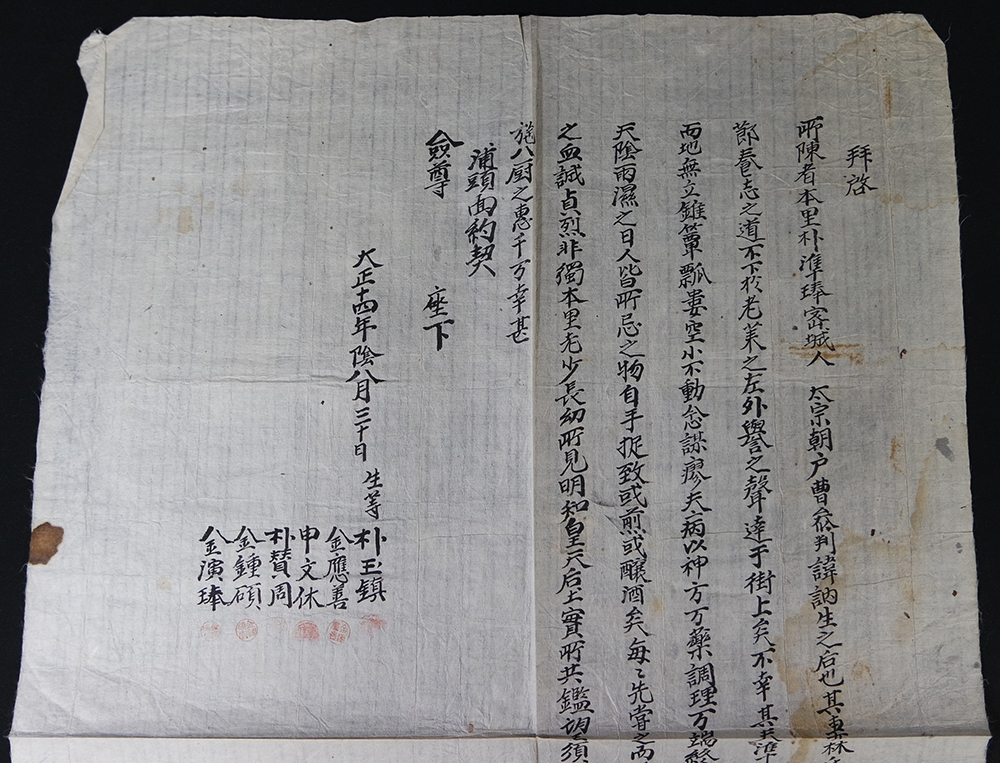 拜啓
所陳者本里朴準琫密城人 太宗朝户曹叅判諱訥生之后也其
節養志之道不下於老萊之左外譽之聲達于街上矣不幸其夫準
而地無立錐簞瓢婁空小不動念謀療夫病以神方万藥調理万端
天陰雨濕之日人皆所忌之物自手捉致或煎或釀酒矣每〻先嘗之而
之血誠貞烈非獨本里老少長幼所見明知皇天后土實所共鑑望須
施八厨之惠千万幸甚
蒲頭面約契
僉尊 座下
大正十四年陰八月三十日 生等 朴玉鎮
金應善
申文休
朴賛周
金鍾碩
金演琫